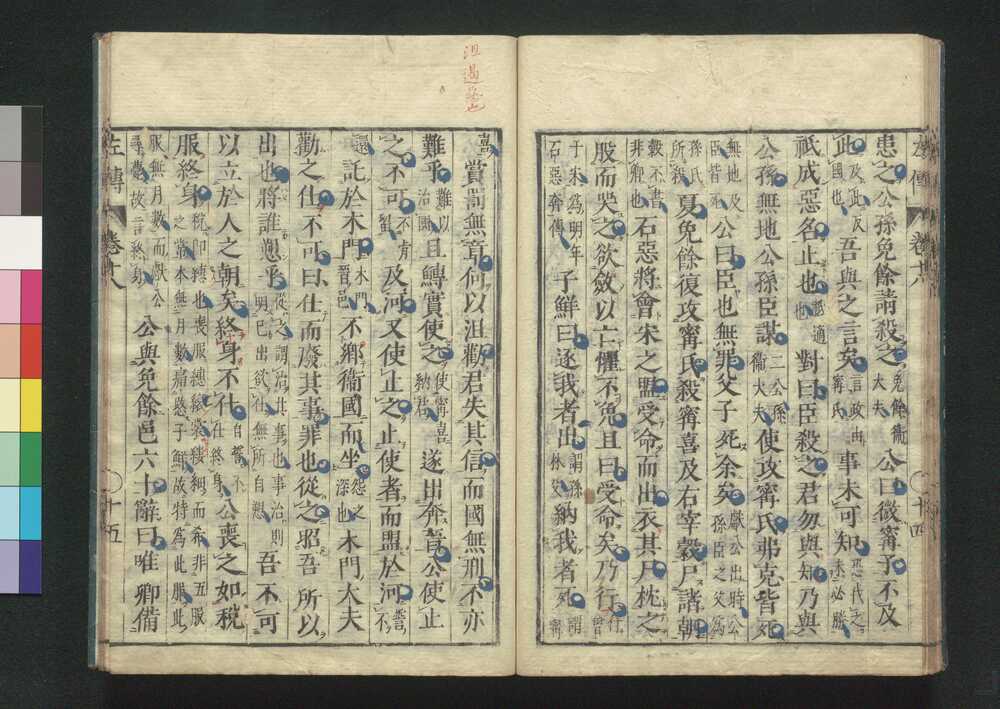 左傳 卷十八 十四
患之公孫免餘請殺之免餘衞大夫公曰微甯子不及
此及此反國也吾與之言矣言政由甯氏事未可知恐伐之未必勝
祗成惡名止也祗適也對曰臣殺之君勿與知乃與
公孫無地公孫臣謀二公孫衞大夫使攻甯氏弗克皆死
無地及臣皆死公曰臣也無罪父子死余矣獻公出時公孫臣之父爲
孫氏所殺夏免餘復攻甯氏殺甯喜及右宰穀尸諸朝
穀不書非卿也石惡將會宋之盟受命而出衣其尸枕之
股而哭之欲斂以亡懼不免且曰受命矣乃行行會
于宋爲明年石惡奔傳子鮮曰逐我者出謂孫林父納我者死謂甯
沮遏
喜賞罰無章何以沮勸君失其信而國無刑不亦
難乎難以治國且鱄實使之使甯喜納君遂出奔晉公使止
之不可不肯還及河又使止之止使者而盟於河誓不
還託於木門木門晉邑不鄉衞國而坐怨之深也木門大夫
勸之仕不可曰仕而廢其事罪也從之昭吾所以
出也將誰愬乎從之謂治其事也事治則明已出欲仕無所自愬吾不可
以立於人之朝矣終身不仕自誓不仕終身公喪之如稅
服終身稅即繐也喪服繐縗裳縷細而希非五服之常本無月數痛愍子鮮故特爲此服此
服無月數而獻公尋薨故言終身公與免餘邑六十辭曰唯卿備
左傳 卷十八 十五